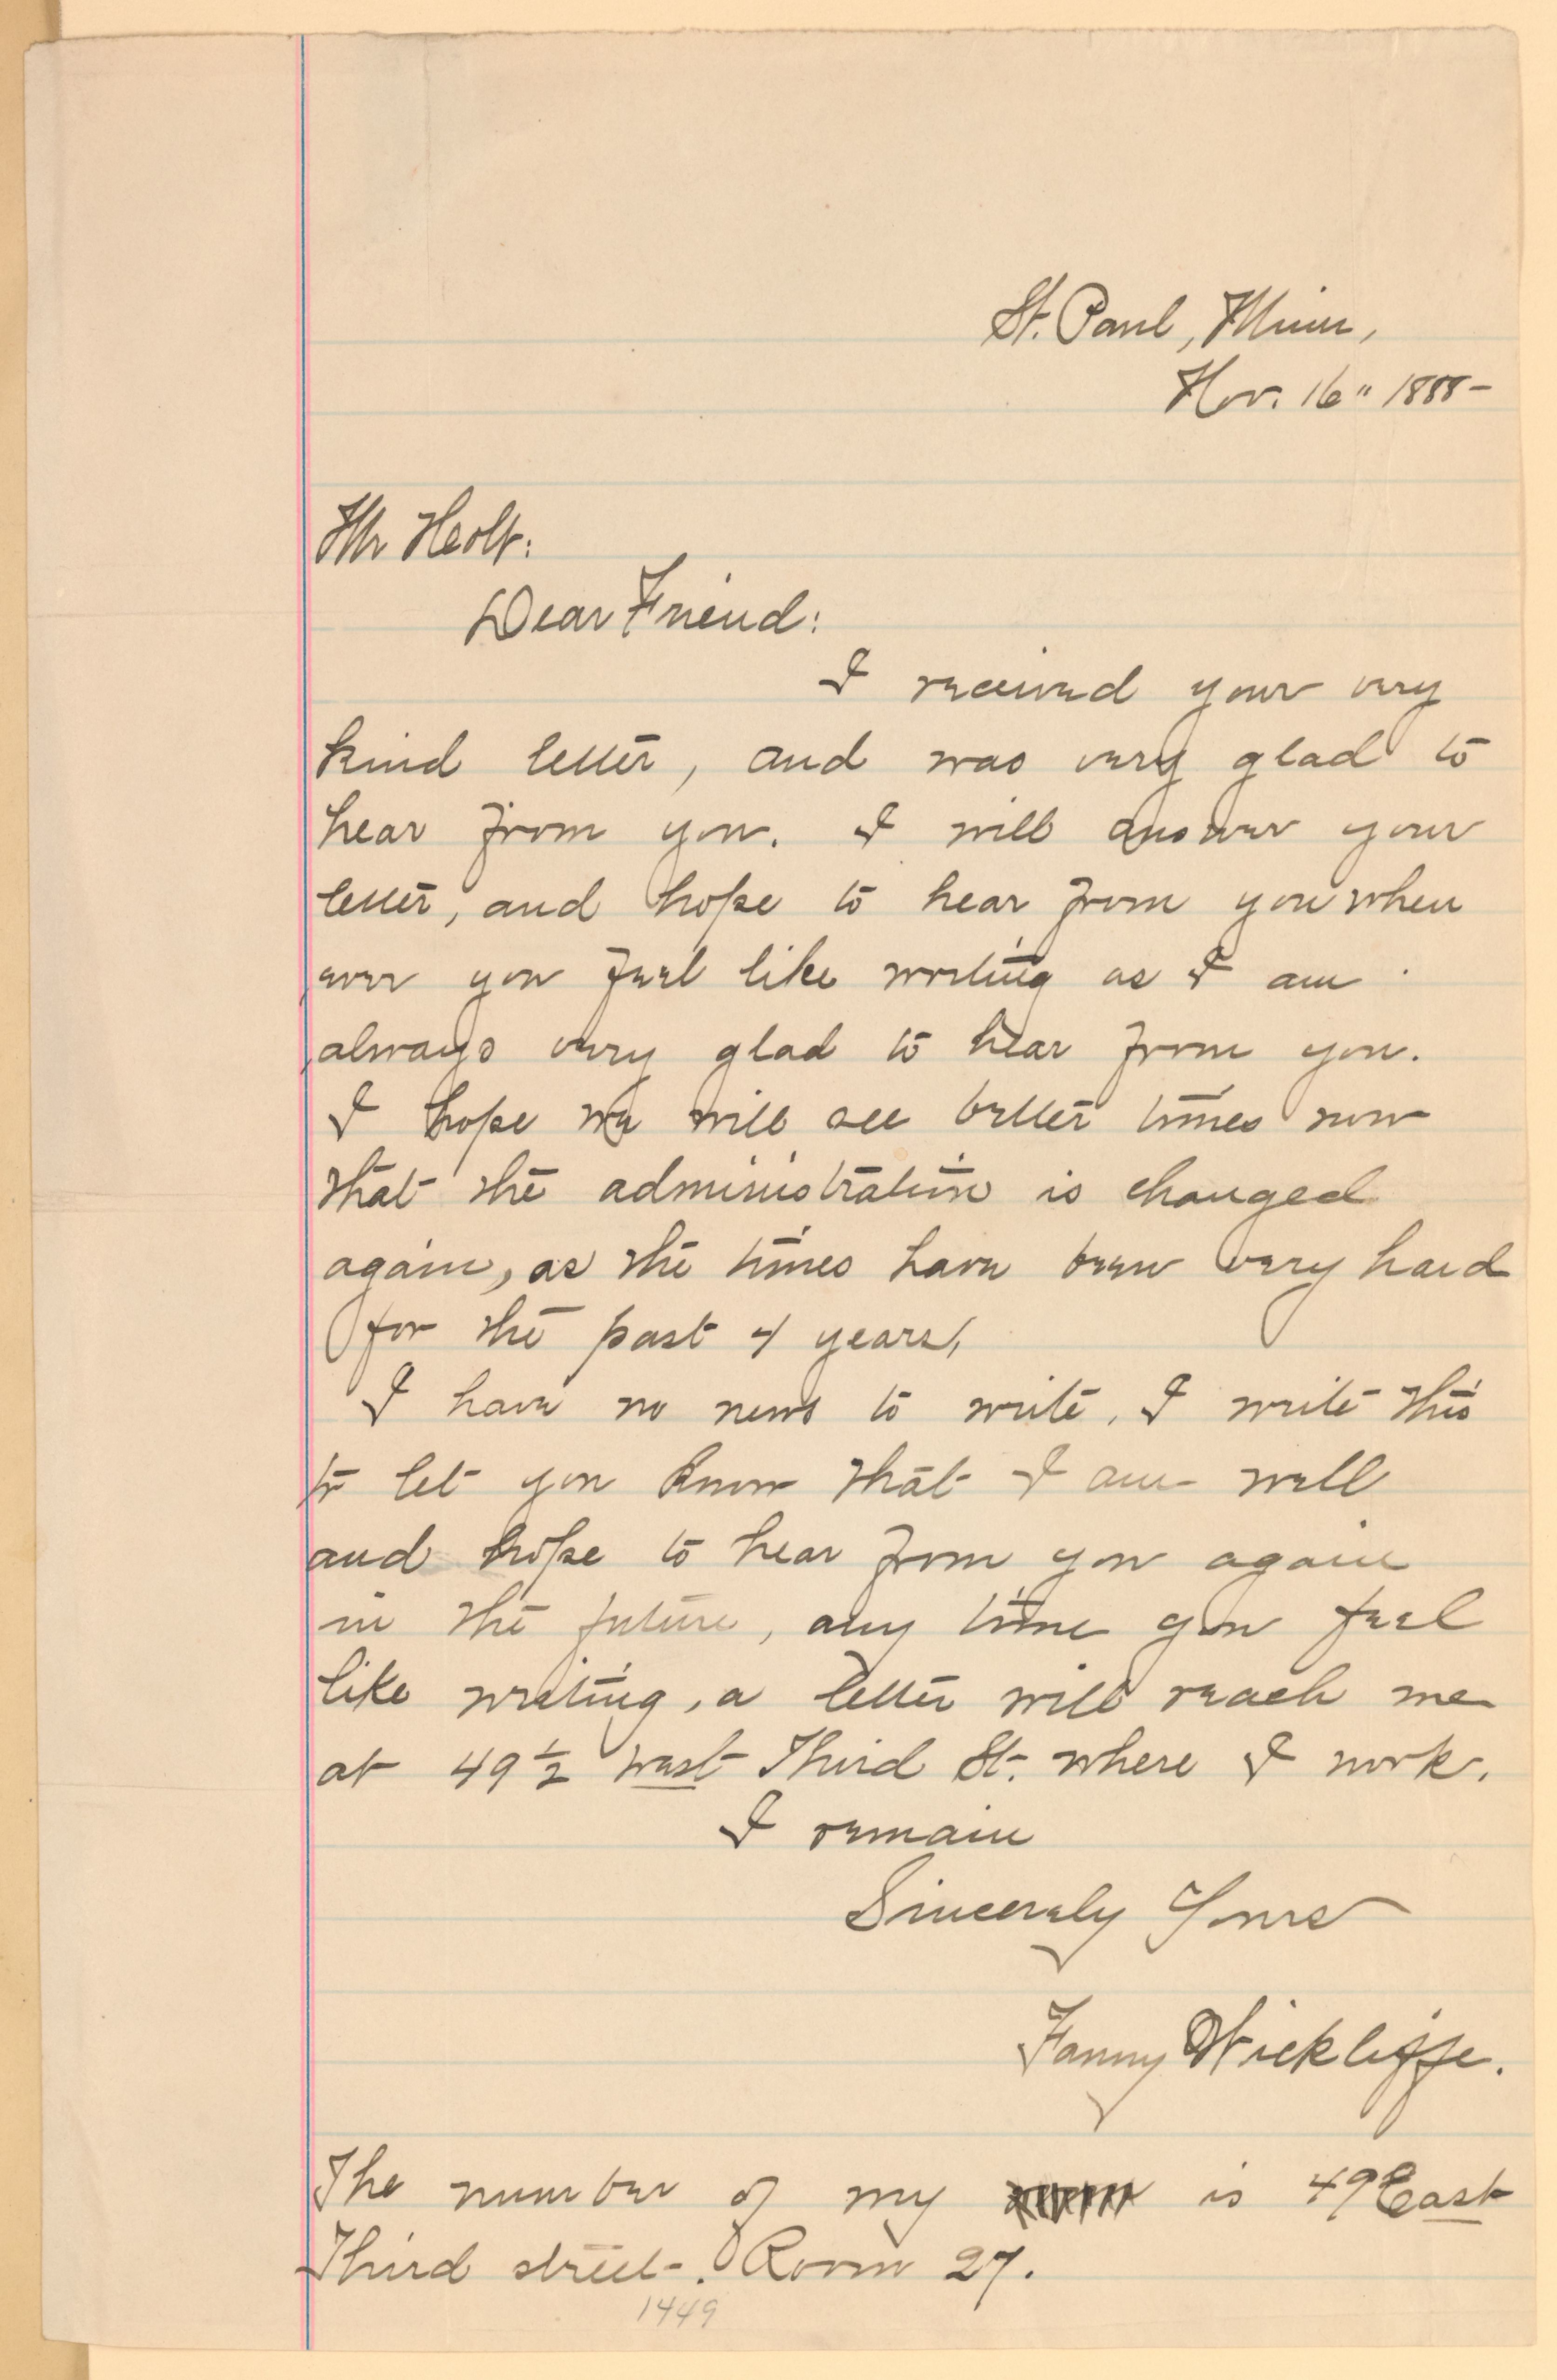 St. Paul, Minn,
Nov. 16" 1888-
Mr Holt:
Dear Friend:
I received your very
kind letter, and was very glad to
hear from you. I will answer your
letter, and hope to hear from you when
ever you feel like writing as I am
always very glad to hear from you.
I hope we will see better times now
that the administration is changed
again, as the times have been very hard
for the past 4 years,
I have no news to write, I write this
to let you know that I am well
and hope to hear from you again
in the future, any time you feel
like writing, a letter will reach me
at 49 1/2 west Third St. where I work.
I remain
Sincerely Yours
Fanny Wickliffe.
The number of my is 49 East
Third street. Room 27.
1449